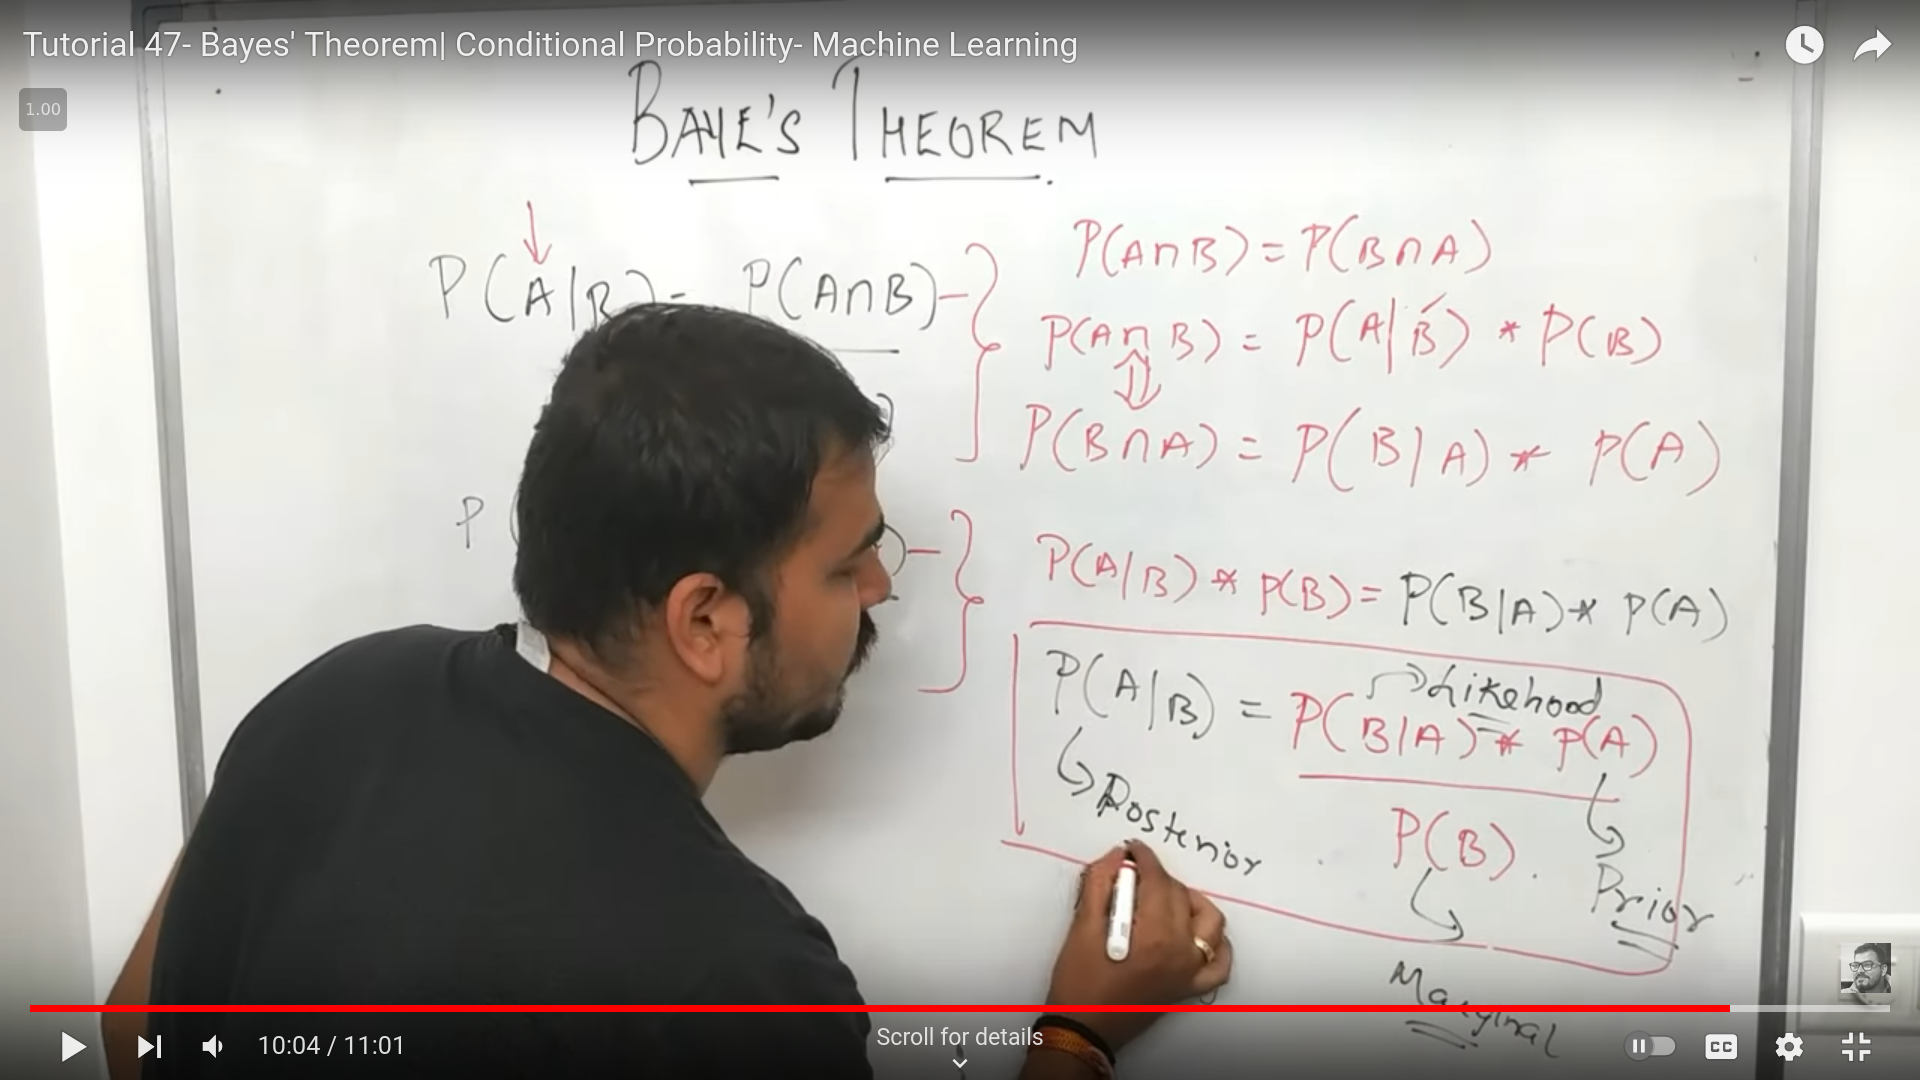 Tutorial 47- Bayes' Theorem| Conditional Probability- Machine Learning
1.00
BAYE'S THEOREM
P(A|B)= P(A∩B)
P(A∩B)=P(B∩A)
P(A∩B) = P(A|B) * P(B)
P(B∩A) = P(B|A) * P(A)
P(
P(A|B) * P(B)= P(B|A)* P(A)
Likehood
P(A|B) = P(B|A) * P(A)
P(B).
Posterior
Prior
Marginal
10:04 / 11:01
Scroll for details
CC